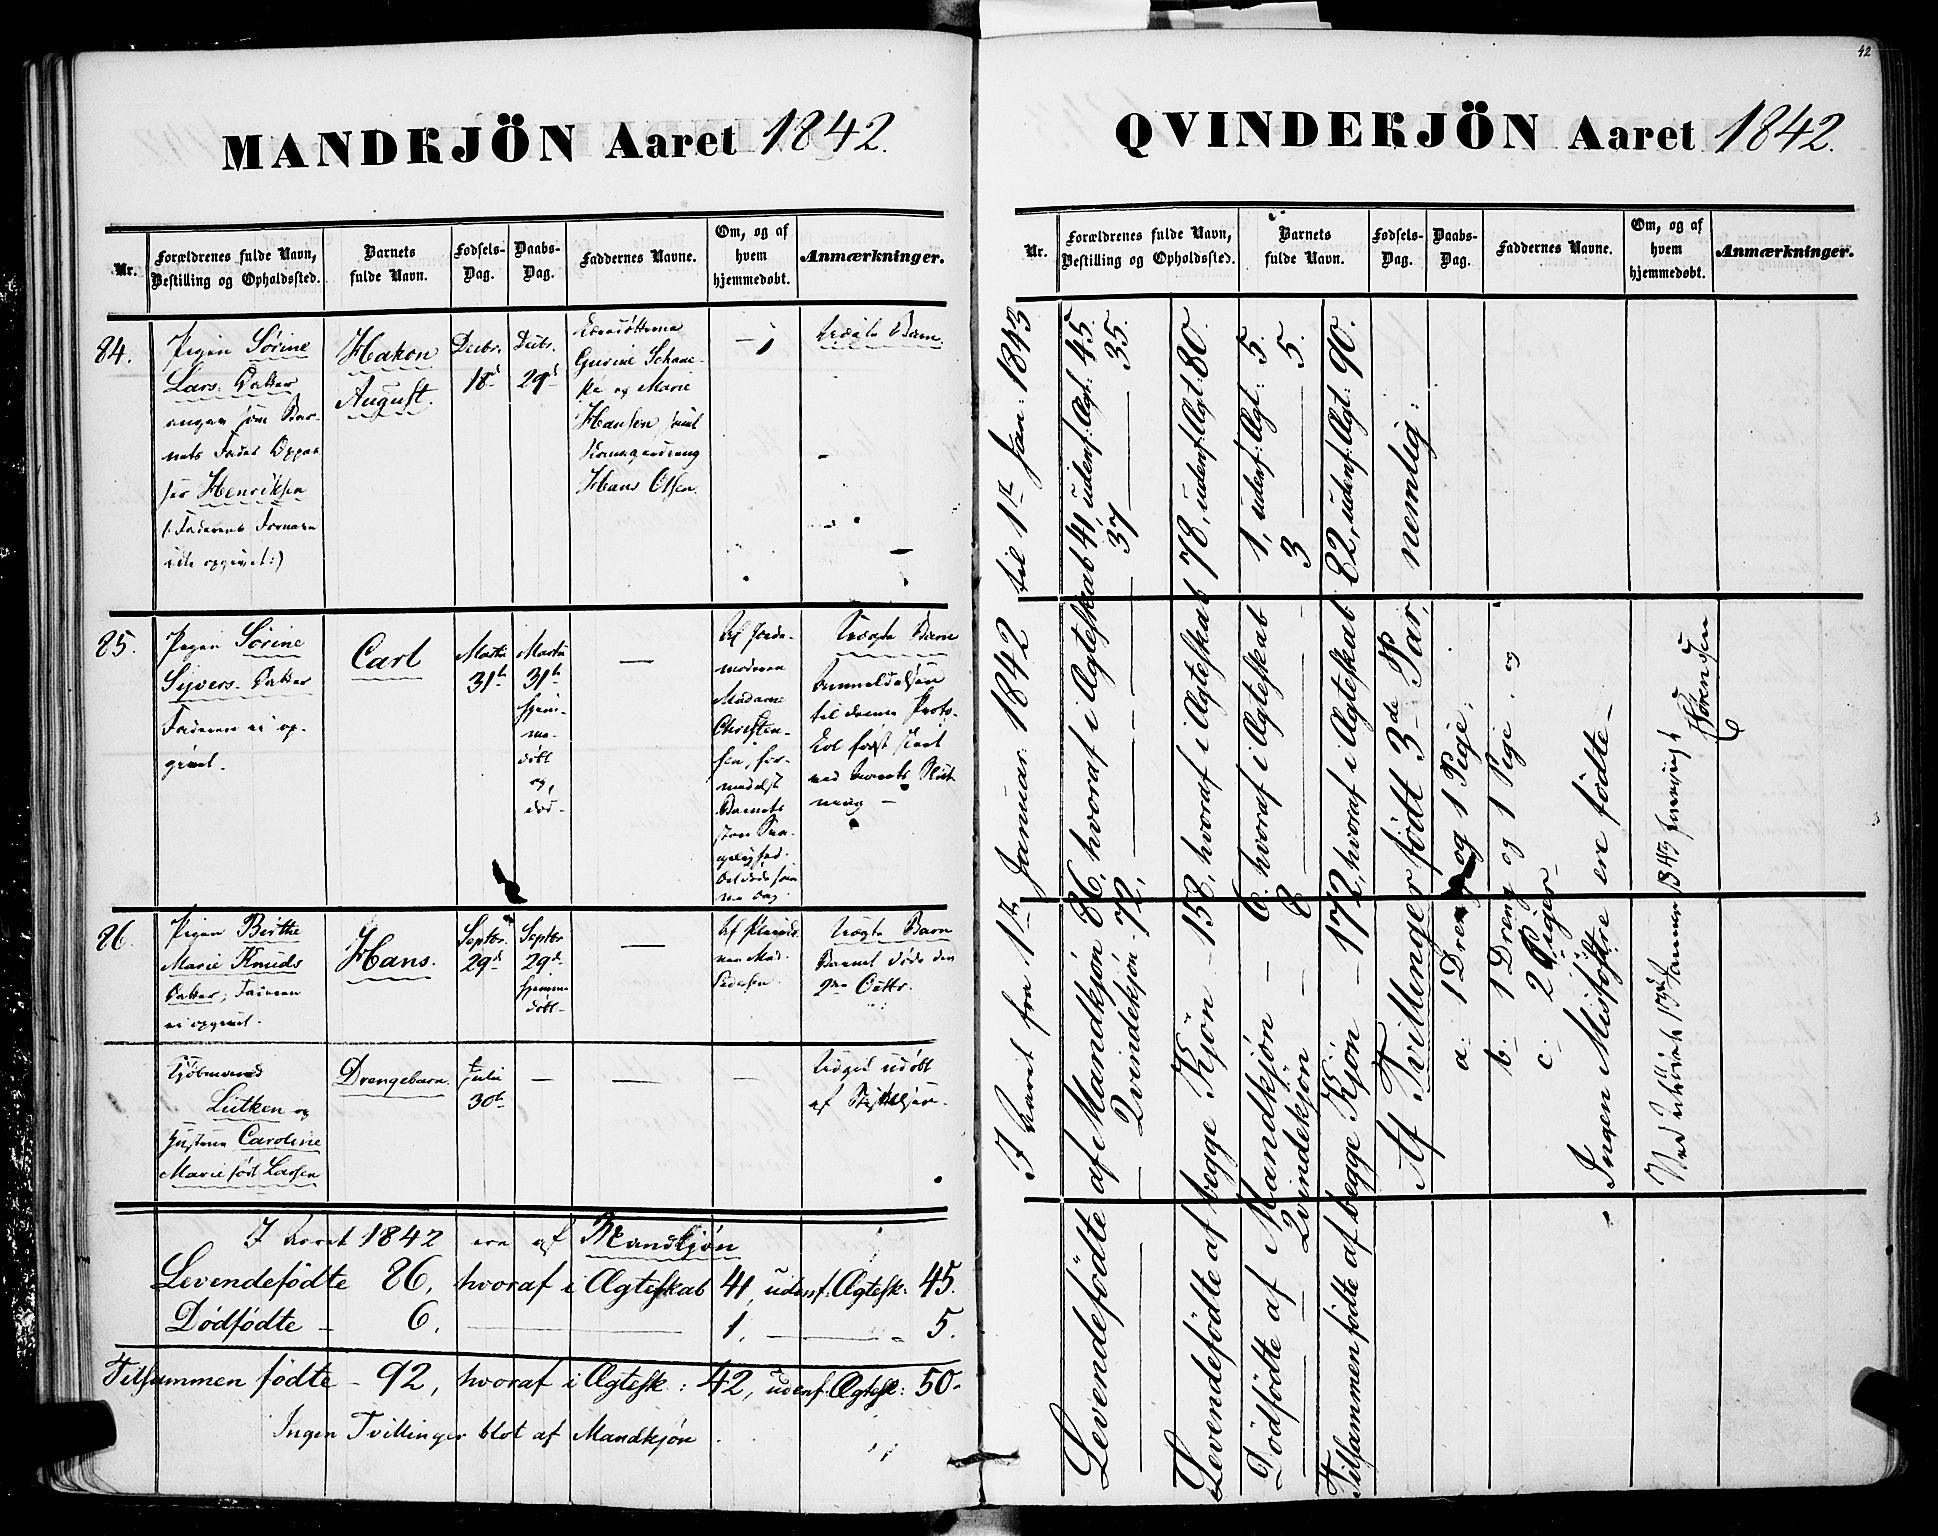 42
MANDKJÖN Aaret 1842.
Nr.
Forældrenes fulde Navn,
Bestilling og Opholdssted.
Barnets
fulde Navn.
Fødsels-
Dag.
Daabs-
Dag.
Faddernes Navne.
Om, og af
hvem
hjemmedøbt.
Anmærkninger.
84.
Pigen Sørine
Lars. Datter
angav som Bar-
nets Fader
Henriksen
(: Faderens Fornavn
ikke opgivet :)
Hakon
August.
Decbr.
18d
Decbr.
29d
Gurine
og Marie
Hansen, samt
Hans Olsen.
uægte Barn.
85.
Pigen Sørine
Syvers. Datter
Faderen ei op-
givet.
Carl
Martii
31th
Martii
31th
hjem-
me-
døbt
og
død -
Af Jorde-
moderen
Madame
Christen-
sen, for-
medelst
Barnets
Uægte Barn
Anmeldelsen
til denne Proto-
col først skeet
ved Aarets Slut-
ning -
86.
Pigen Birthe
Marie Knuds
Datter, Faderen
ei opgivet.
Hans.
Septbr.
29d
Septbr.
29d
hjemme-
døbt -
Mad.
Pedersen.
Uægte Barn
Barnet døde den
Octbr.
Kjøbmand
Lütken og
Hustrue Caroline
Marie født Larsen
Drengebarn.
Julii
30th
udøbt
af
I Aaret 1842 ere af Mandkjøn
Levendefødte 86, hvoraf i Ægteskab 41, udenf: Ægtesk: 45.
Dødfødte - 6. 1. 5.
Tilsammen fødte - 92, hvoraf i Ægtesk: 42, udenf. Ægtesk: 50.
Ingen Tvillinger blot af Mandkjøn
QVINDEKJÖN Aaret 1842.
Nr.
Forældrenes fulde Navn,
Bestilling og Opholdssted.
Barnets
fulde Navn.
Fødsels-
Dag.
Daabs-
Dag.
Faddernes Navne.
Om, og af
hvem
hjemmedøbt.
Anmærkninger.
I Aaret fra 1ste Januar 1842 til 1ste Jan: 1843
Levendefødte af Mandkjøn 86, hvoraf i Ægteskab 41, udenf: Ægt: 45.
— Qvindekjøn - 72, — 37 — 35.
Levendefødte af begge Kjøn - 158, hvoraf i Ægteskab 78, udenf. Ægt: 80.
Dødfødte af Mandkjøn - 6. hvoraf i Ægteskab 1, udenf: Ægt: 5.
— Qvindekjøn 8 — 3 — 5.
Tilsammen fødte af begge Kjøn - 172, hvoraf i Ægteskab 82, udenf. Ægt: 90.
Af Tvillinger født 3de Par, nemlig:
a. 1 Dreng og 1 Pige.
b. 1 Dreng og 1 Pige. og
c. 2 Piger -
Ingen Misfostre ere fødte -
1843
Sørensen